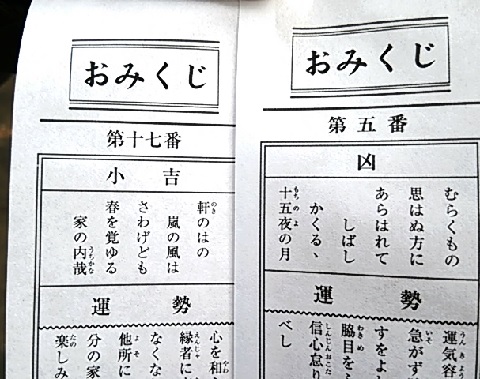 おみくじ
第十七番
小吉
軒のはの
嵐の風は
さわげども
春を覚ゆる
家の内哉
運勢
心を和
縁者に
なくな
他所に
分の家
楽しみ
おみくじ
第五番
凶
むらくもの
思はぬ方に
あらはれて
しばし
かくるゝ
十五夜の月
運勢
運気容
急がず
すをよ
脇目を
信心怠り
べし